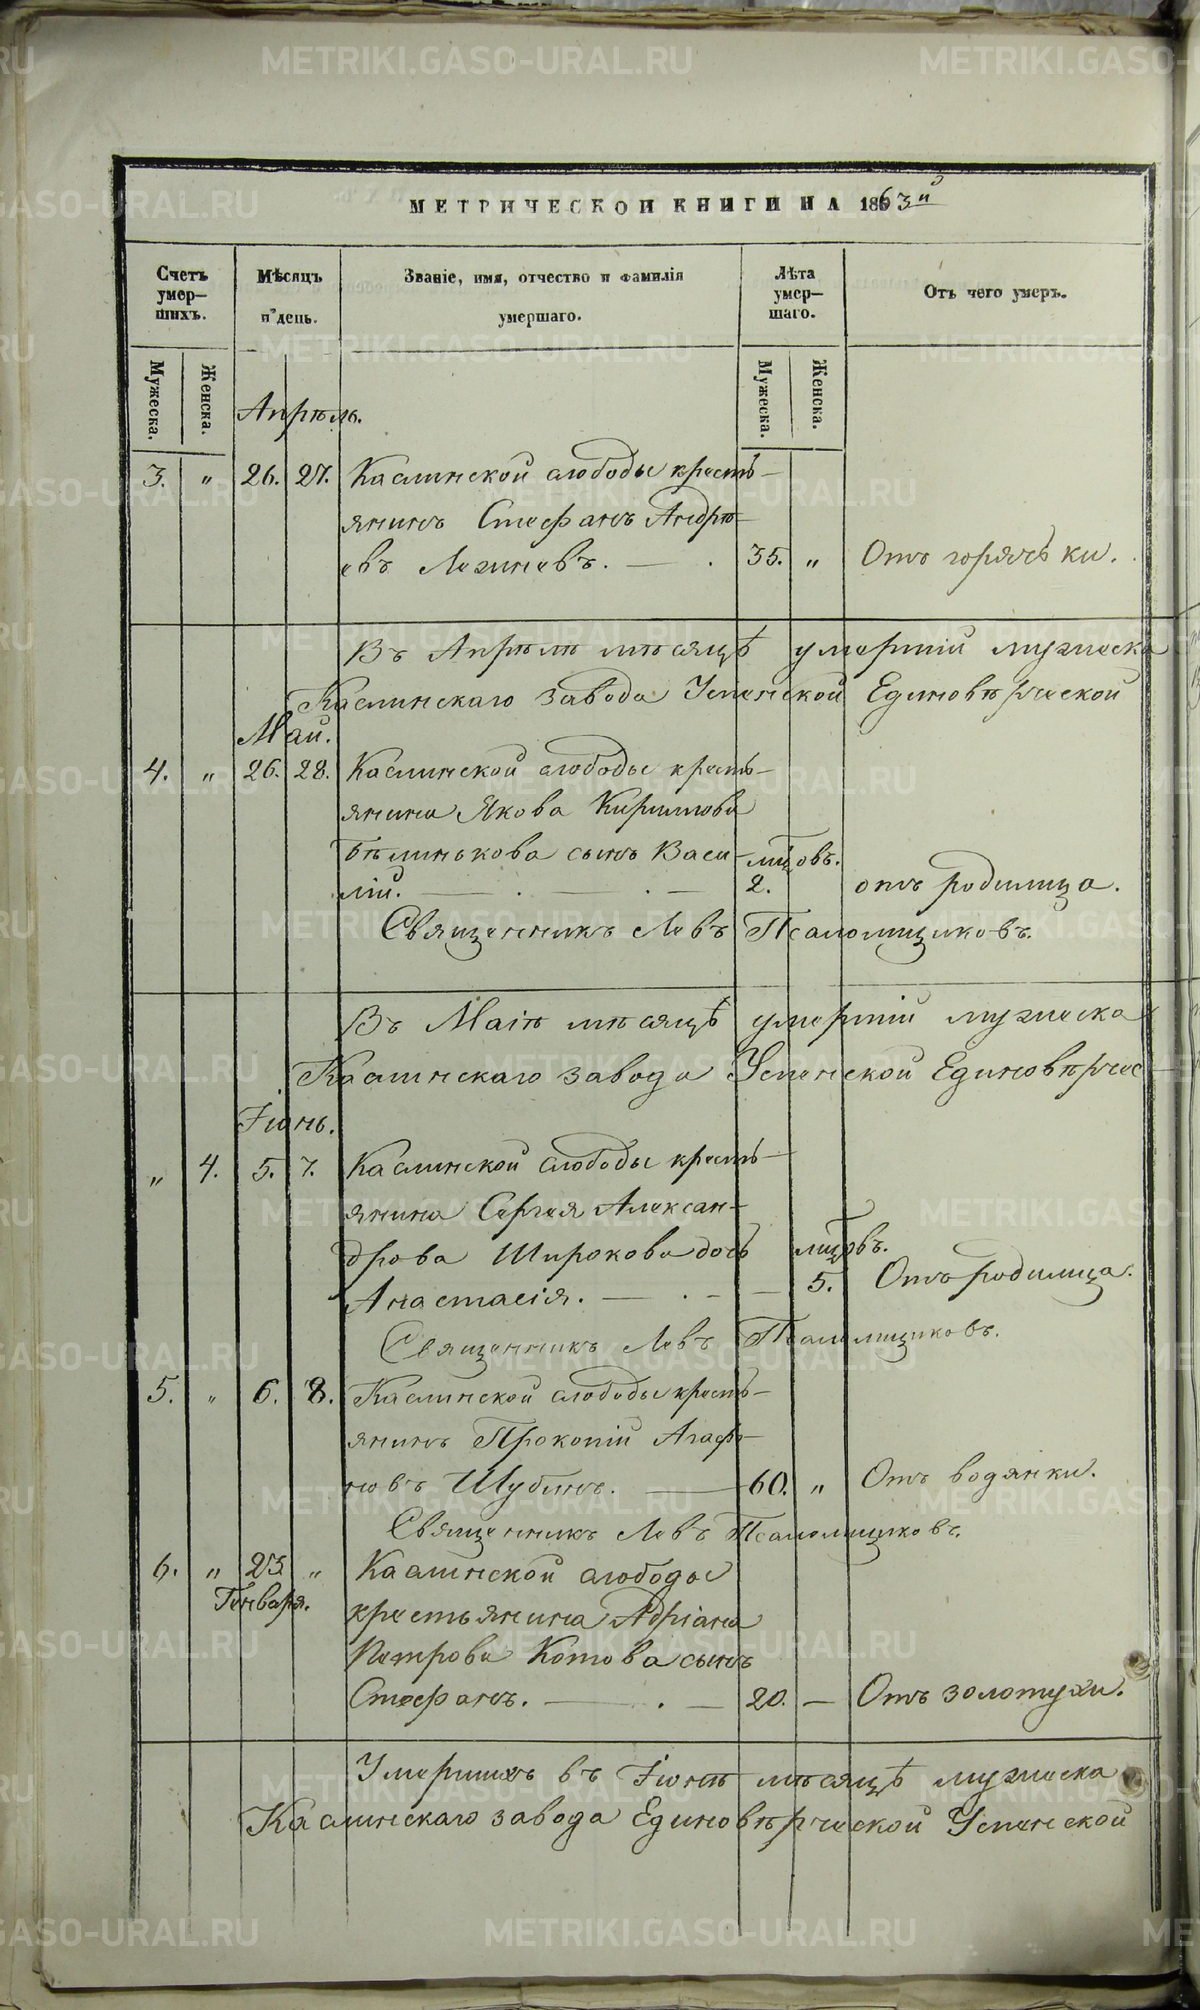 МЕТРИЧЕСКОЙ КНИГИ НА 1863й
Счетъ умер-шихъ.
Мѣсяцъ и день.
Званіе, имя, отчество и фамилія умершаго.
Лѣта умер-шаго.
Отъ чего умеръ.
Мужеска.
Женска.
Мужеска.
Женска.
Апрѣль.
3. " 26. 27. Каслинской слободы кресть-
янинъ Стефанъ Андрѣ-
евъ Логиновъ. — . 35. " Отъ горячьки.
Въ Апрѣлѣ мѣсяцѣ умершій мужеска
Каслинскаго завода Успенской Единовѣрческой
Май.
4. " 26. 28. Каслинской слободы кресть-
янина Якова Кирилова
Бѣлинькова сынъ Васи-
лій. — . — . — лѣтовъ. 2. отъ родимца.
Священникъ Левъ Псаломщиковъ.
Въ Маіѣ мѣсяцѣ умершій мужеска
Каслинскаго завода Успенской Единовѣрчес-
Іюнь.
" 4. 5. 7. Каслинской слободы кресть-
янина Сергея Алексан-
дрова Широкова дочь
Анастасія. — . — — лѣтовъ. 5. Отъ родимца.
Священникъ Левъ Псаломщиковъ.
5. " 6. 8. Каслинской слободы кресть-
янинъ Прокопій Агафо-
новъ Шубинъ. — 60. " Отъ водянки.
Священникъ Левъ Псаломщиковъ.
6. " 23 " Каслинской слободы
Генваря.
крестьянина Адріана
Петрова Котова сынъ
Стефанъ. — . — 20. — Отъ золотухи.
Умершихъ въ Іюнѣ мѣсяцѣ мужеска
Каслинскаго завода Единовѣрческой Успенской
METRIKI.GASO-URAL.RU